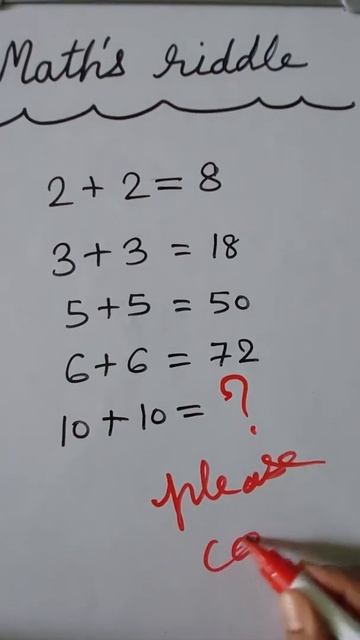 Math's riddle
2 + 2 = 8
3 + 3 = 18
5 + 5 = 50
6 + 6 = 72
10 + 10 = ?
please